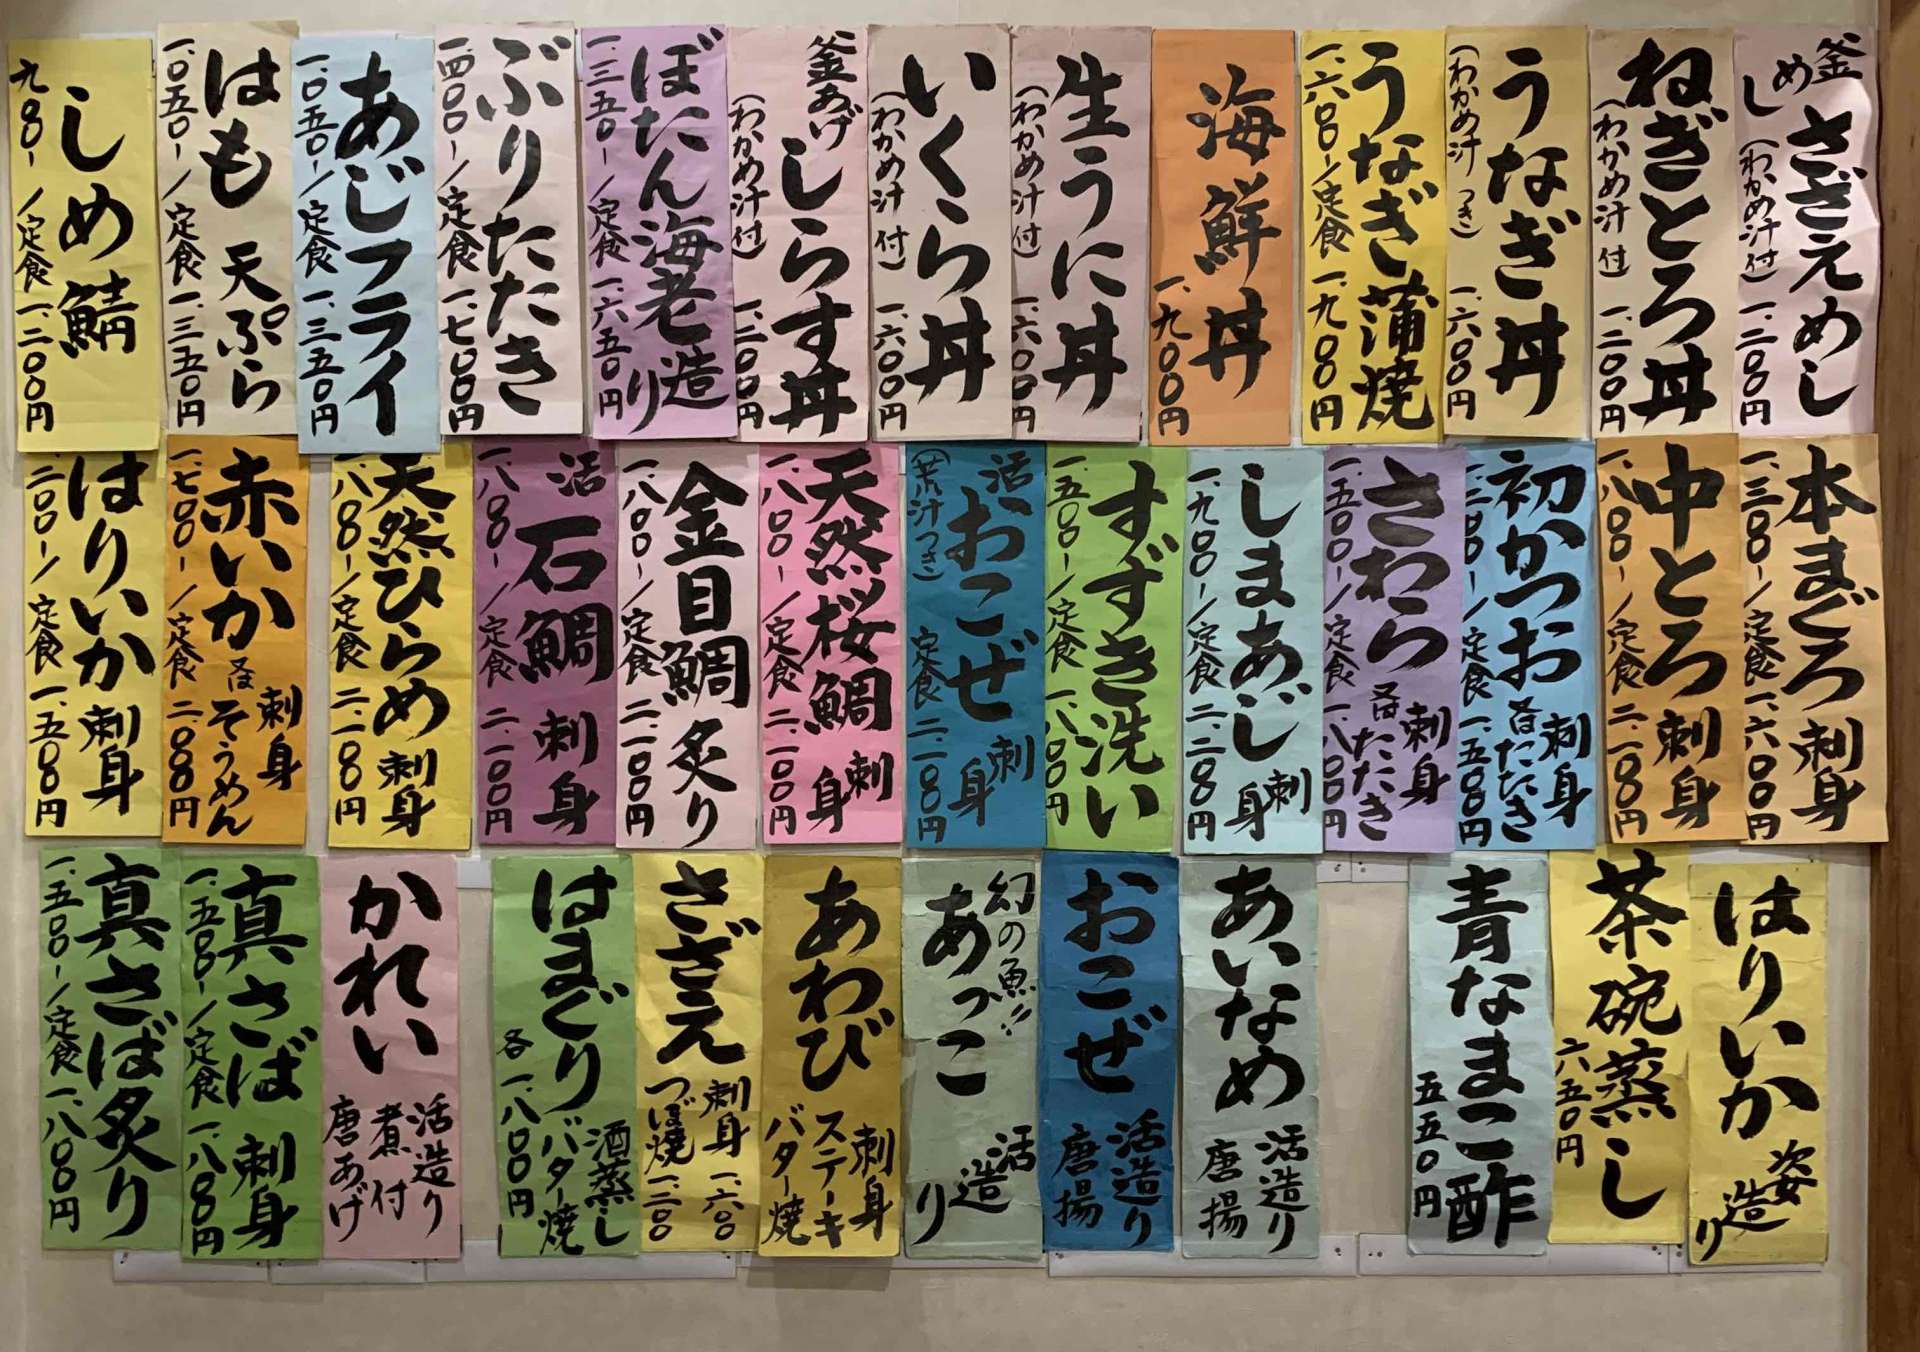 釜めし さざえめし
(わかめ汁付) 一、二〇〇円
ねぎとろ丼
(わかめ汁付) 一、二〇〇円
うなぎ丼
(わかめ汁つき) 一、六〇〇円
うなぎ蒲焼
一、六〇〇-/定食 一、九〇〇円
海鮮丼
一、九〇〇円
生うに丼
(わかめ汁付) 一、六〇〇円
いくら丼
(わかめ汁付) 一、六〇〇円
釜あげしらす丼
(わかめ汁付) 一、二〇〇円
ぼたん海老造り
一、三五〇-/定食 一、六五〇円
ぶりたたき
一、四〇〇-/定食 一、七〇〇円
あじフライ
一、〇五〇-/定食 一、三五〇円
はも天ぷら
一、〇五〇-/定食 一、三五〇円
しめ鯖
九〇〇-/定食 一、二〇〇円
本まぐろ 刺身
一、三〇〇-/定食 一、六〇〇円
中とろ 刺身
一、八〇〇-/定食 二、一〇〇円
初かつお 刺身又はたたき
一、二〇〇-/定食 一、五〇〇円
さわら 刺身又はたたき
一、五〇〇-/定食 一、八〇〇円
しまあじ 刺身
一、九〇〇-/定食 二、二〇〇円
すずき洗い
一、五〇〇-/定食 一、八〇〇円
活おこぜ 刺身
(荒汁つき) 定食 二、一〇〇円
天然桜鯛 刺身
一、八〇〇-/定食 二、一〇〇円
金目鯛 炙り
一、八〇〇-/定食 二、一〇〇円
活石鯛 刺身
一、八〇〇-/定食 二、一〇〇円
天然ひらめ 刺身
一、八〇〇-/定食 二、一〇〇円
赤いか 刺身又はそうめん
一、七〇〇-/定食 二、〇〇〇円
はりいか 刺身
一、二〇〇-/定食 一、五〇〇円
はりいか 姿造り
茶碗蒸し
六五〇円
青なまこ酢
五五〇円
あいなめ 活造り
唐揚
おこぜ 活造り
唐揚
幻の魚!!
あっこ 活造り
あわび 刺身
ステーキ
バター焼
さざえ 刺身 一、六〇〇
つぼ焼 一、二〇〇
はまぐり 酒蒸し
バター焼
各 一、八〇〇円
かれい 活造り
煮付
唐あげ
真さば 刺身
一、五〇〇-/定食 一、八〇〇円
真さば炙り
一、五〇〇-/定食 一、八〇〇円